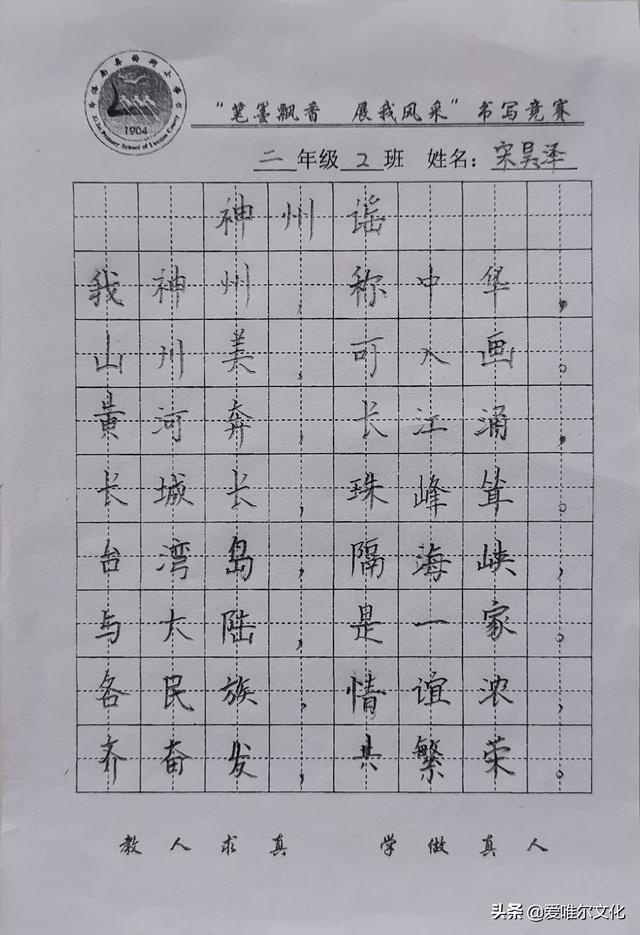 1904
“笔墨飘香 展我风采”书写竞赛
二年级2班 姓名：宋昊泽
神州谣
我神州，称中华，
山川美，可入画。
黄河奔，长江涌，
长城长，珠峰耸。
台湾岛，隔海峡，
与大陆，是一家。
各民族，情谊浓，
齐奋发，共繁荣。
教人求真 学做真人
头条 @爱唯尔文化